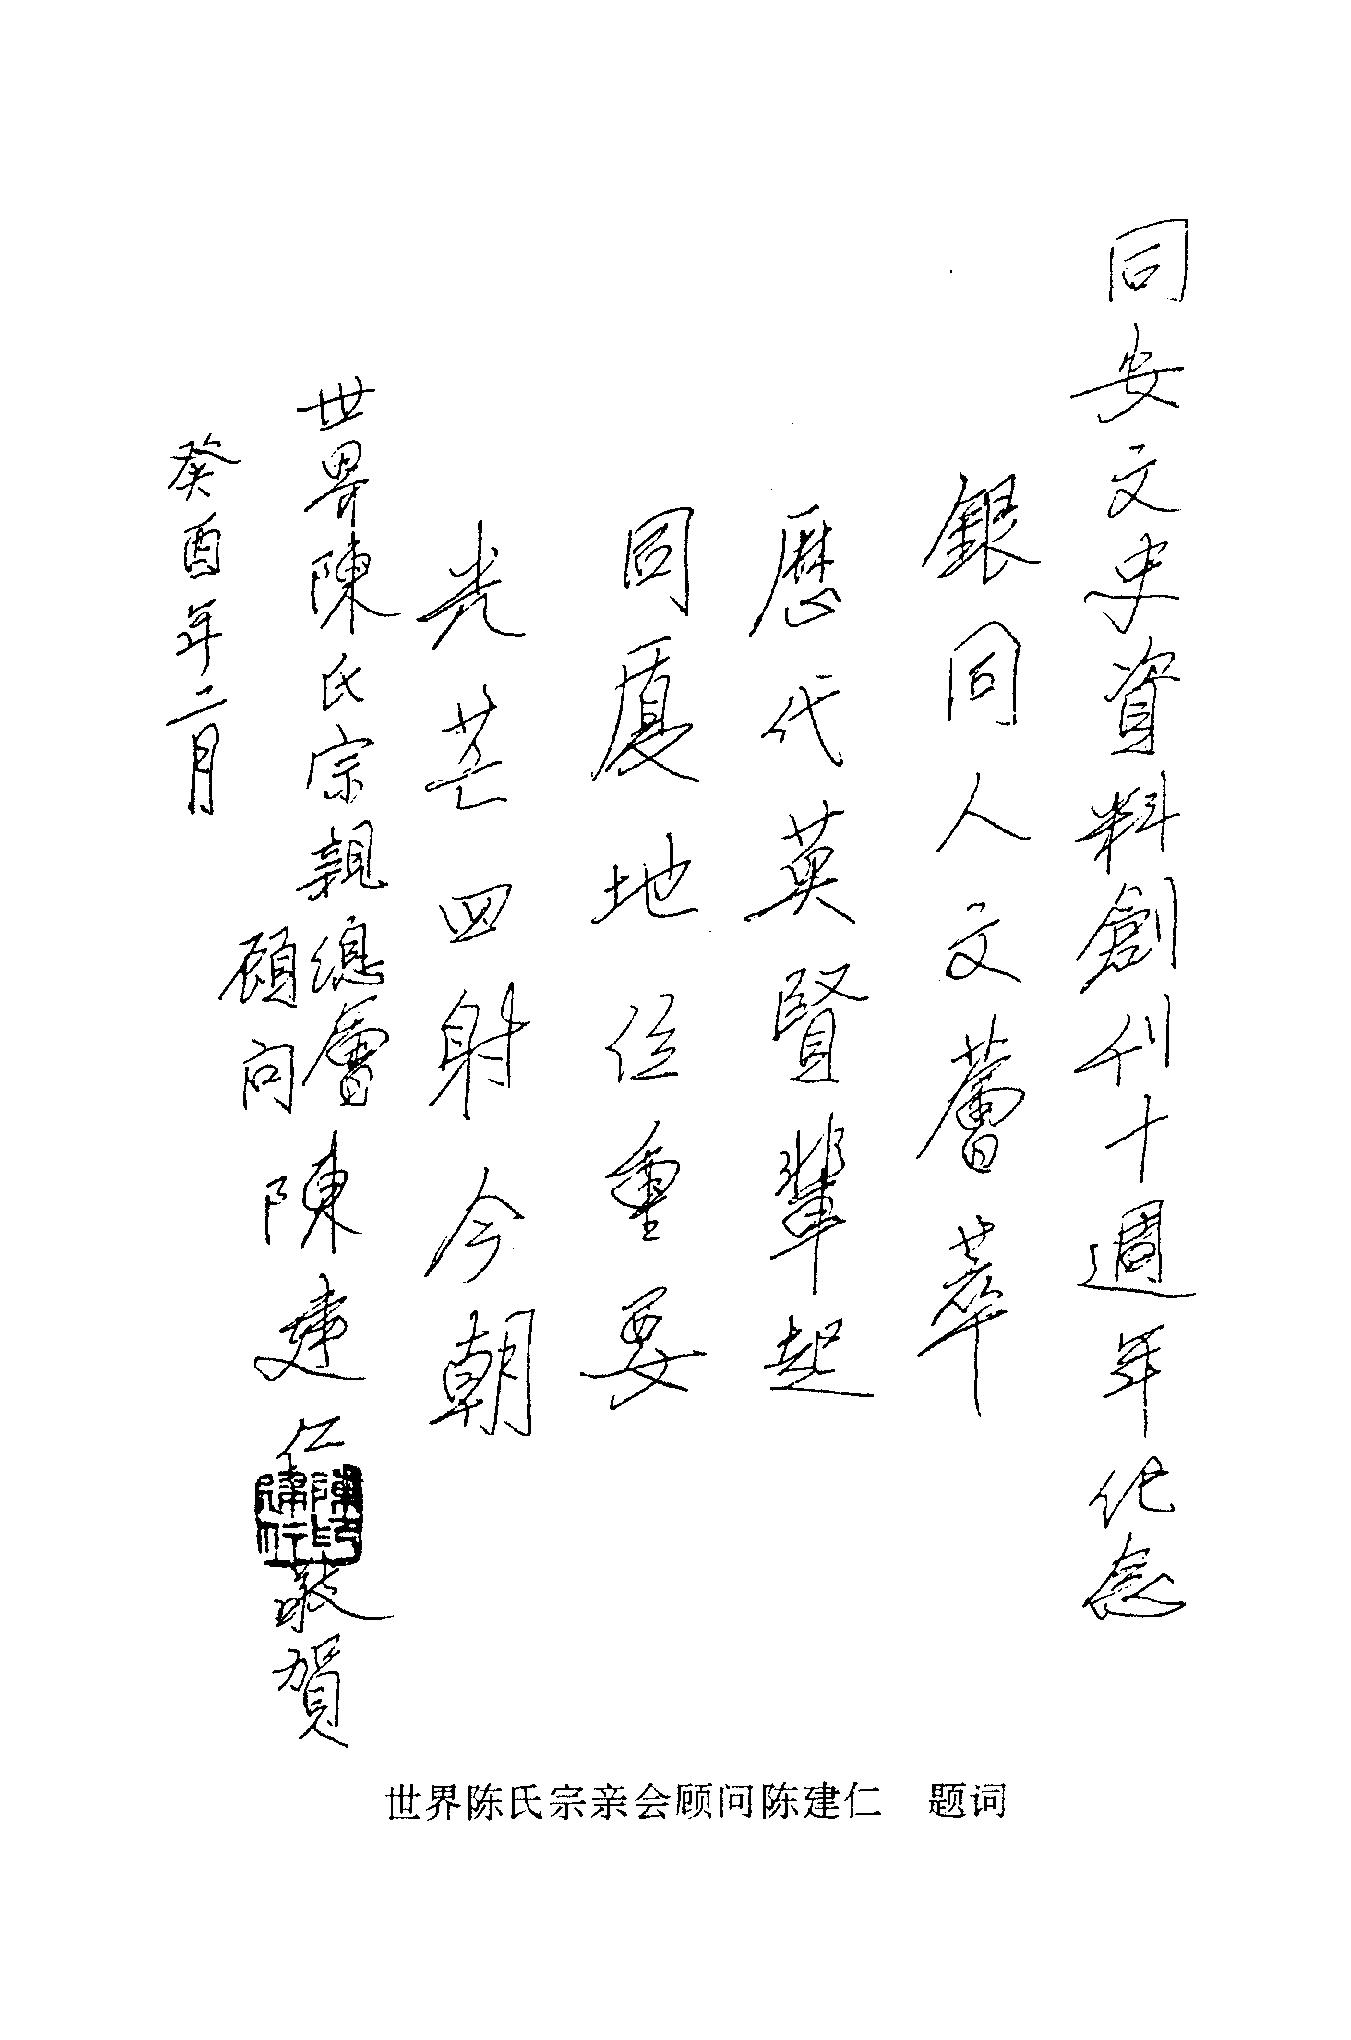 同安文史資料創刊十週年纪念
銀同人文薈萃
歷代英賢輩起
同廈地位重要
光芒四射今朝
世界陳氏宗親總會
顧问
陳建仁敬賀
陳印建仁
癸酉年二月
世界陈氏宗亲会顾问陈建仁 题词